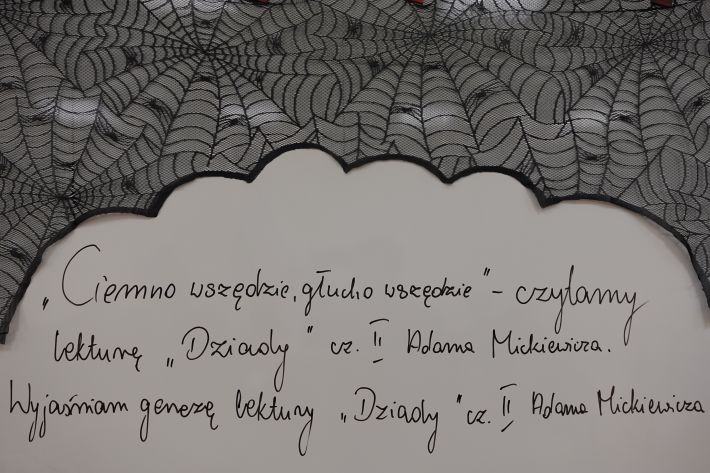 „Ciemno wszędzie, głucho wszędzie" - czytamy
lekturę „Dziady" cz. II Adama Mickiewicza.
Wyjaśniam genezę lektury „Dziady" cz. II Adama Mickiewicza